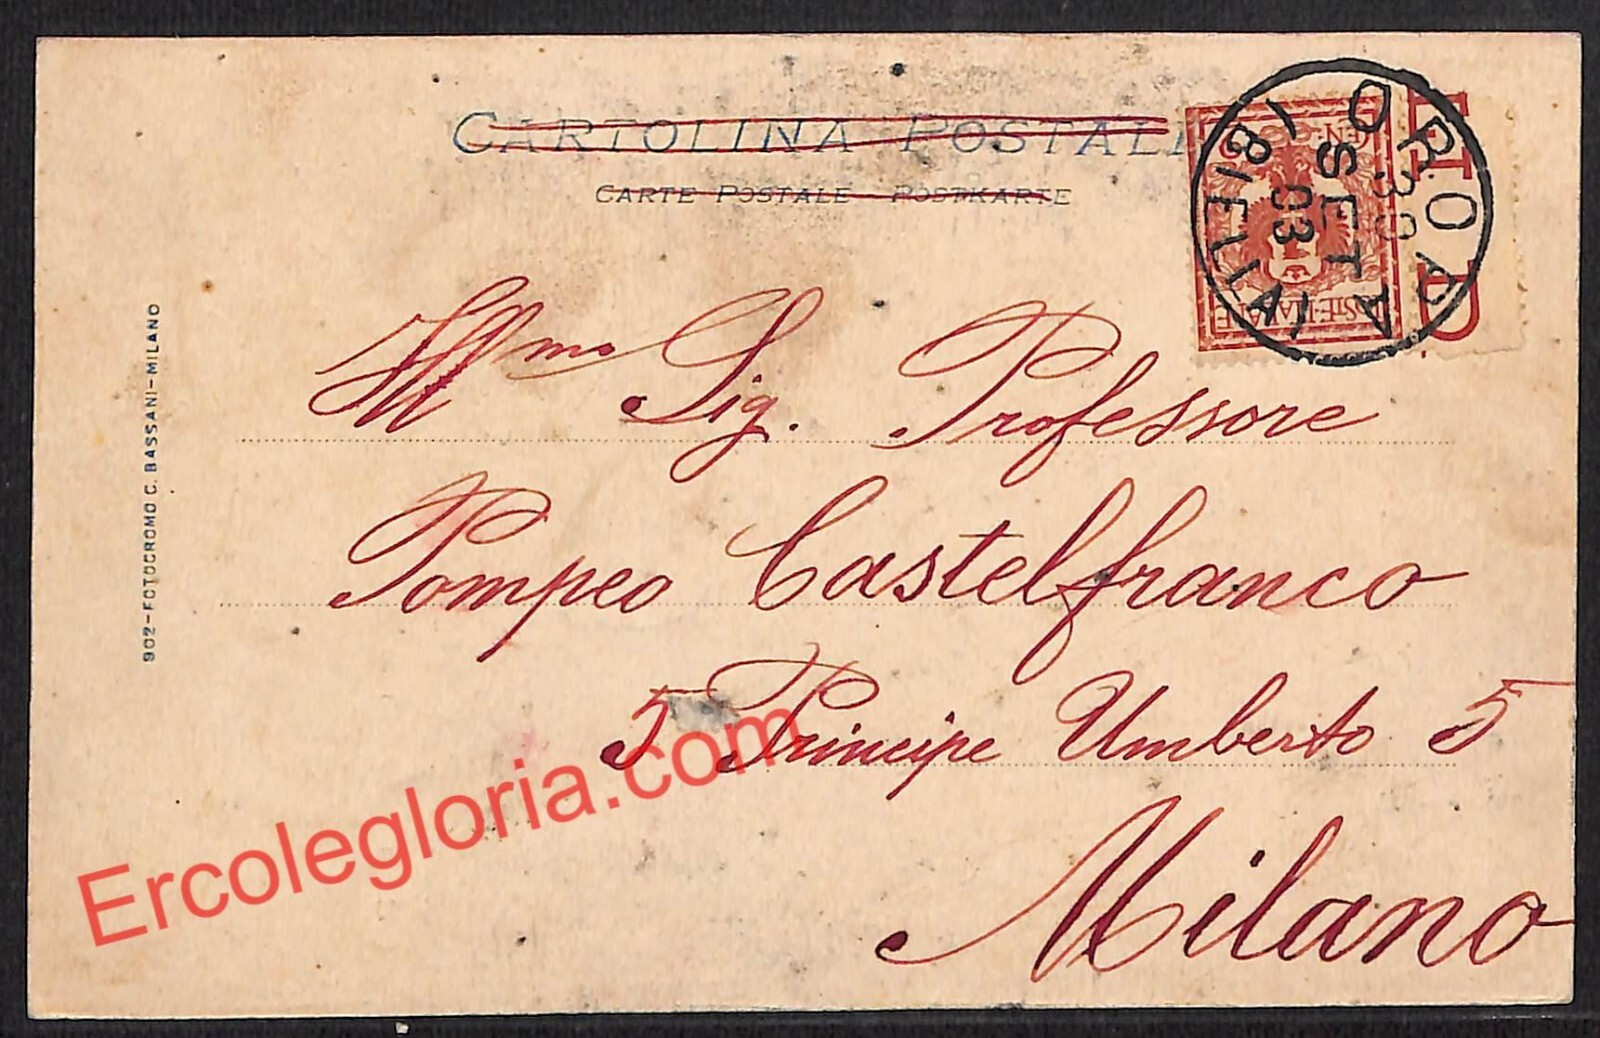 CARTOLINA POSTALE
CARTE POSTALE - POSTKARTE
Ill.mo Sig. Professore
Pompeo Castelfranco
5 Principe Umberto 5
Milano
902-FOTOCROMO C. BASSANI-MILANO
OROPA
SET
03
POSTE ITALIANE
CEN.
Ercolegloria.com